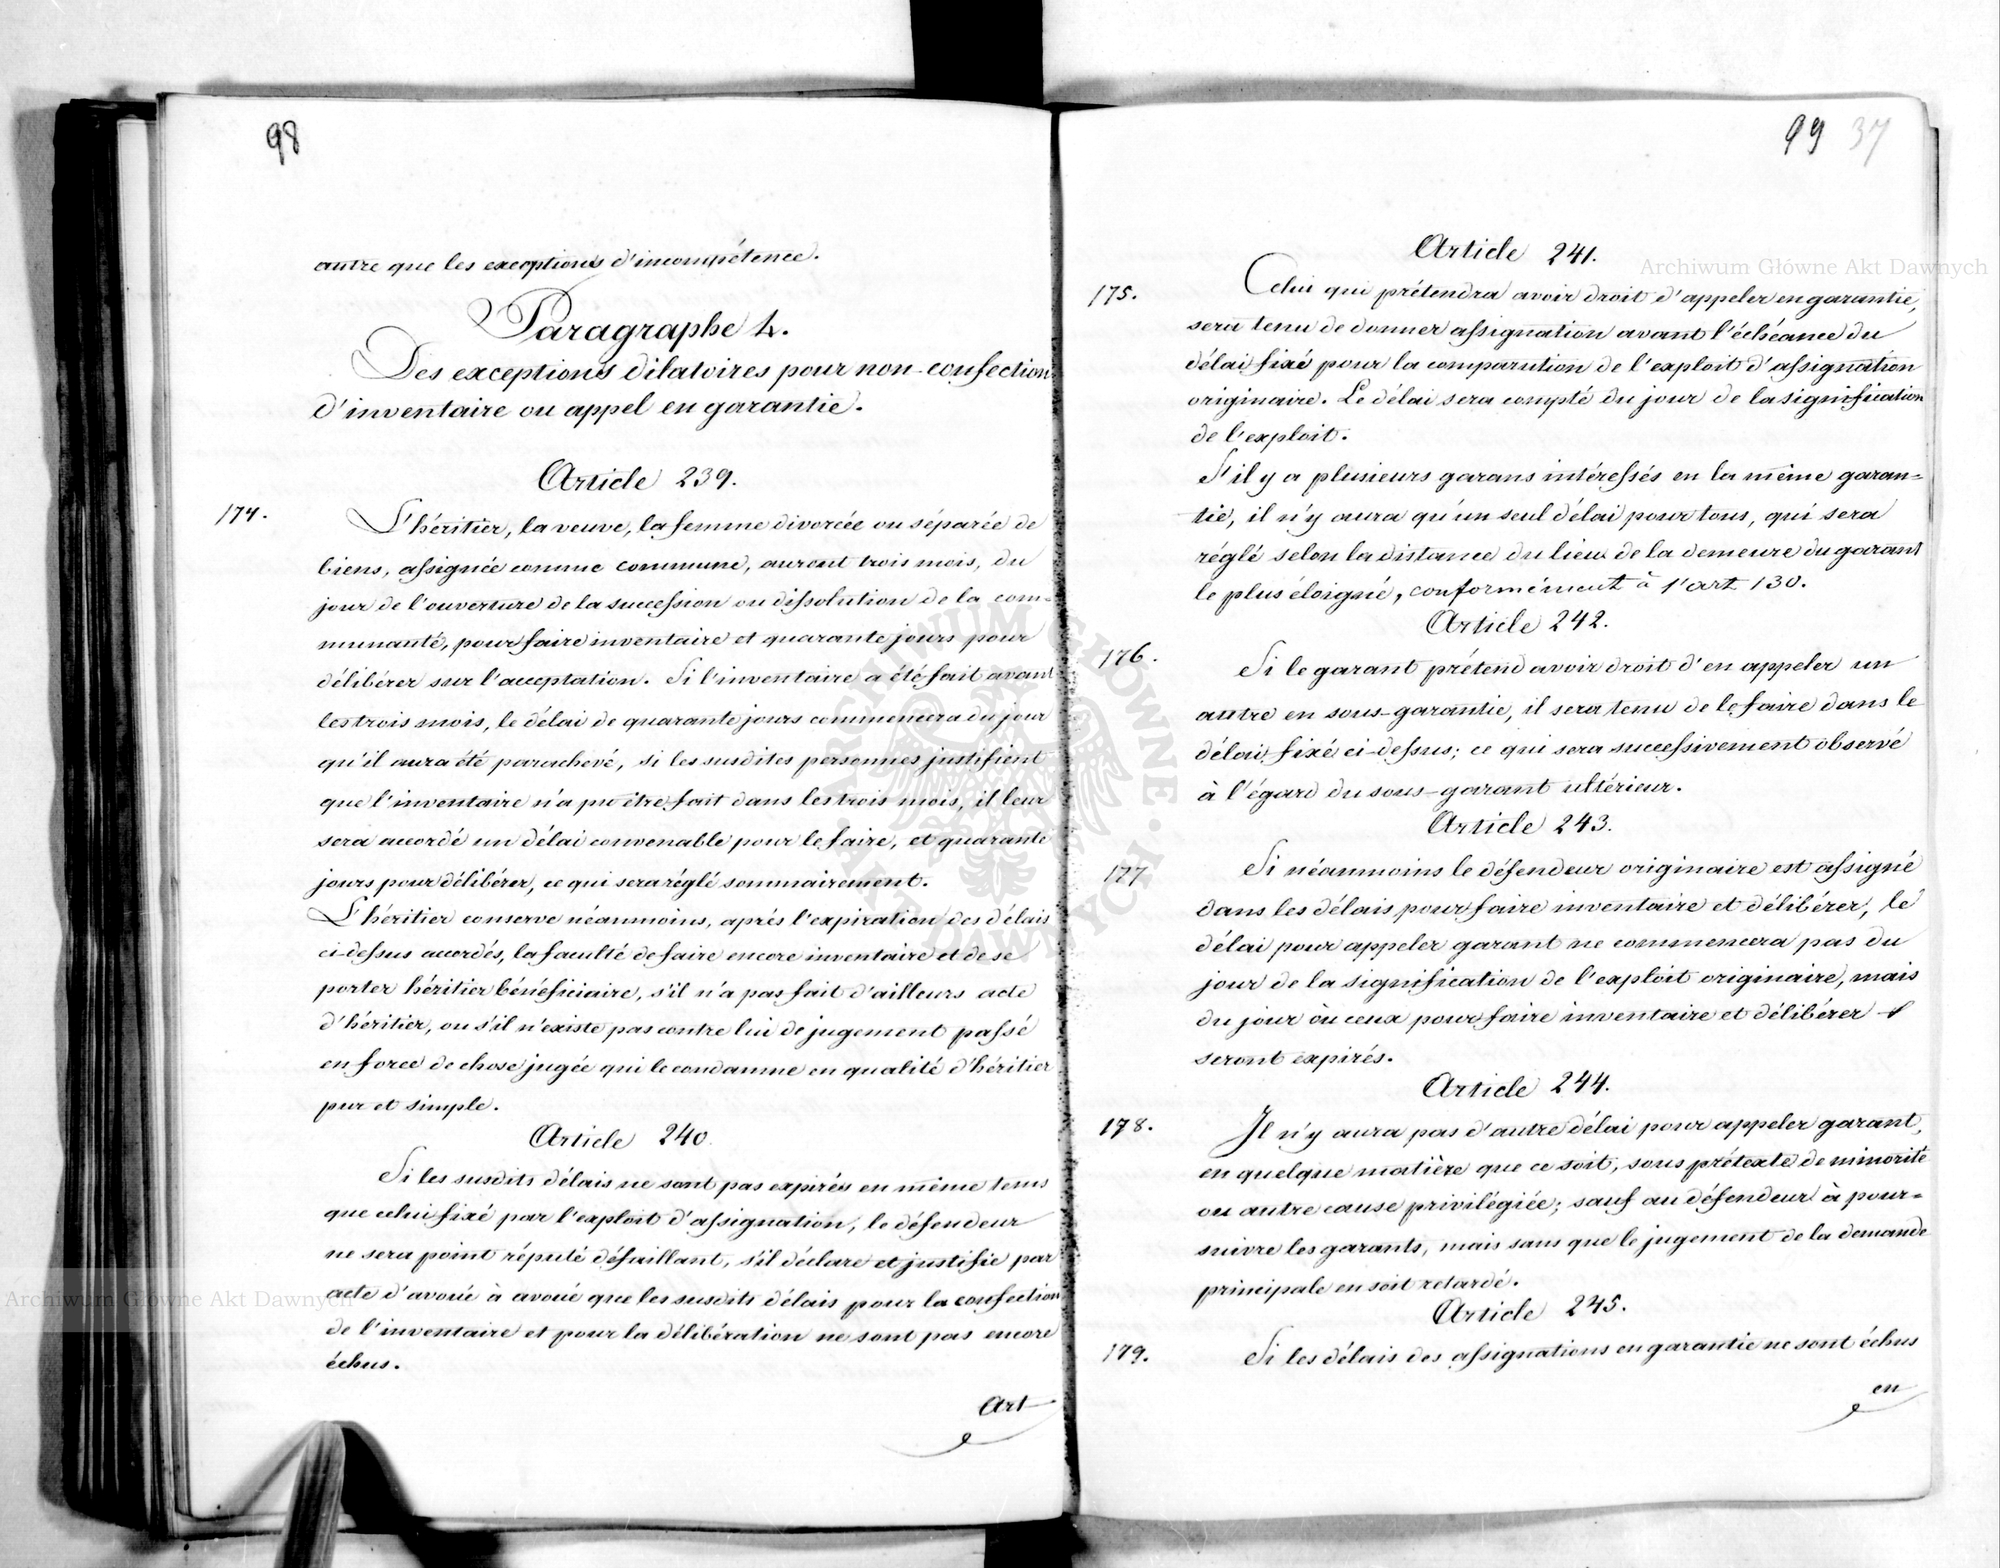 98
autre que les exceptions d'incompétence.
Paragraphe 4.
Des exceptions dilatoires pour non-confection
d'inventaire ou appel en garantie.
Article 239.
174.
L'héritier, la veuve, la femme divorcée ou séparée de
biens, assignée comme commune, auront trois mois, du
jour de l'ouverture de la succession ou dissolution de la com=
munauté, pour faire inventaire et quarante jours pour
délibérer sur l'acceptation. Si l'inventaire a été fait avant
les trois mois, le délai de quarante jours commencera du jour
qu'il aura été parachevé, si les susdites personnes justifient
que l'inventaire n'a pu être fait dans les trois mois, il leur
sera accordé un délai convenable pour le faire, et quarante
jours pour délibérer, ce qui sera réglé sommairement.
L'héritier conserve néanmoins, après l'expiration des délais
ci-dessus accordés, la faculté de faire encore inventaire et de se
porter héritier bénéficiaire, s'il n'a pas fait d'ailleurs acte
d'héritier, ou s'il n'existe pas contre lui de jugement passé
en force de chose jugée qui le condamne en qualité d'héritier
pur et simple.
Article 240.
Si les susdits délais ne sont pas expirés en même tems
que celui fixé par l'exploit d'assignation, le défendeur
ne sera point réputé défaillant, s'il déclare et justifie par
acte d'avoué à avoué que les susdits délais pour la confection
de l'inventaire et pour la délibération ne sont pas encore
échus.
Art
99 37
Article 241.
175.
Celui qui prétendra avoir droit d'appeler en garantie,
sera tenu de donner assignation avant l'échéance du
délai fixé pour la comparution de l'exploit d'assignation
originaire. Le délai sera compté du jour de la signification
de l'exploit.
S'il y a plusieurs garans intéressés en la même garan=
tie, il n'y aura qu'un seul délai pour tous, qui sera
réglé selon la distance du lieu de la demeure du garant
le plus éloigné, conformément à l'art 130.
Article 242.
176.
Si le garant prétend avoir droit d'en appeler un
autre en sous-garantie, il sera tenu de le faire dans le
délai fixé ci-dessus; ce qui sera successivement observé
à l'égard du sous-garant ultérieur.
Article 243.
177
Si néanmoins le défendeur originaire est assigné
dans les délais pour faire inventaire et délibérer, le
délai pour appeler garant ne commencera pas du
jour de la signification de l'exploit originaire, mais
du jour où ceux pour faire inventaire et délibérer
seront expirés.
Article 244.
178.
Il n'y aura pas d'autre délai pour appeler garant,
en quelque matière que ce soit, sous prétexte de minorité
ou autre cause privilégiée; sauf au défendeur à pour=
suivre les garants, mais sans que le jugement de la demande
principale en soit retardé.
Article 245.
179.
Si les délais des assignations en garantie ne sont échus
en
Archiwum Główne Akt Dawnych
Archiwum Główne Akt Dawnych
ARCHIWUM GŁÓWNE · AKT DAWNYCH ·